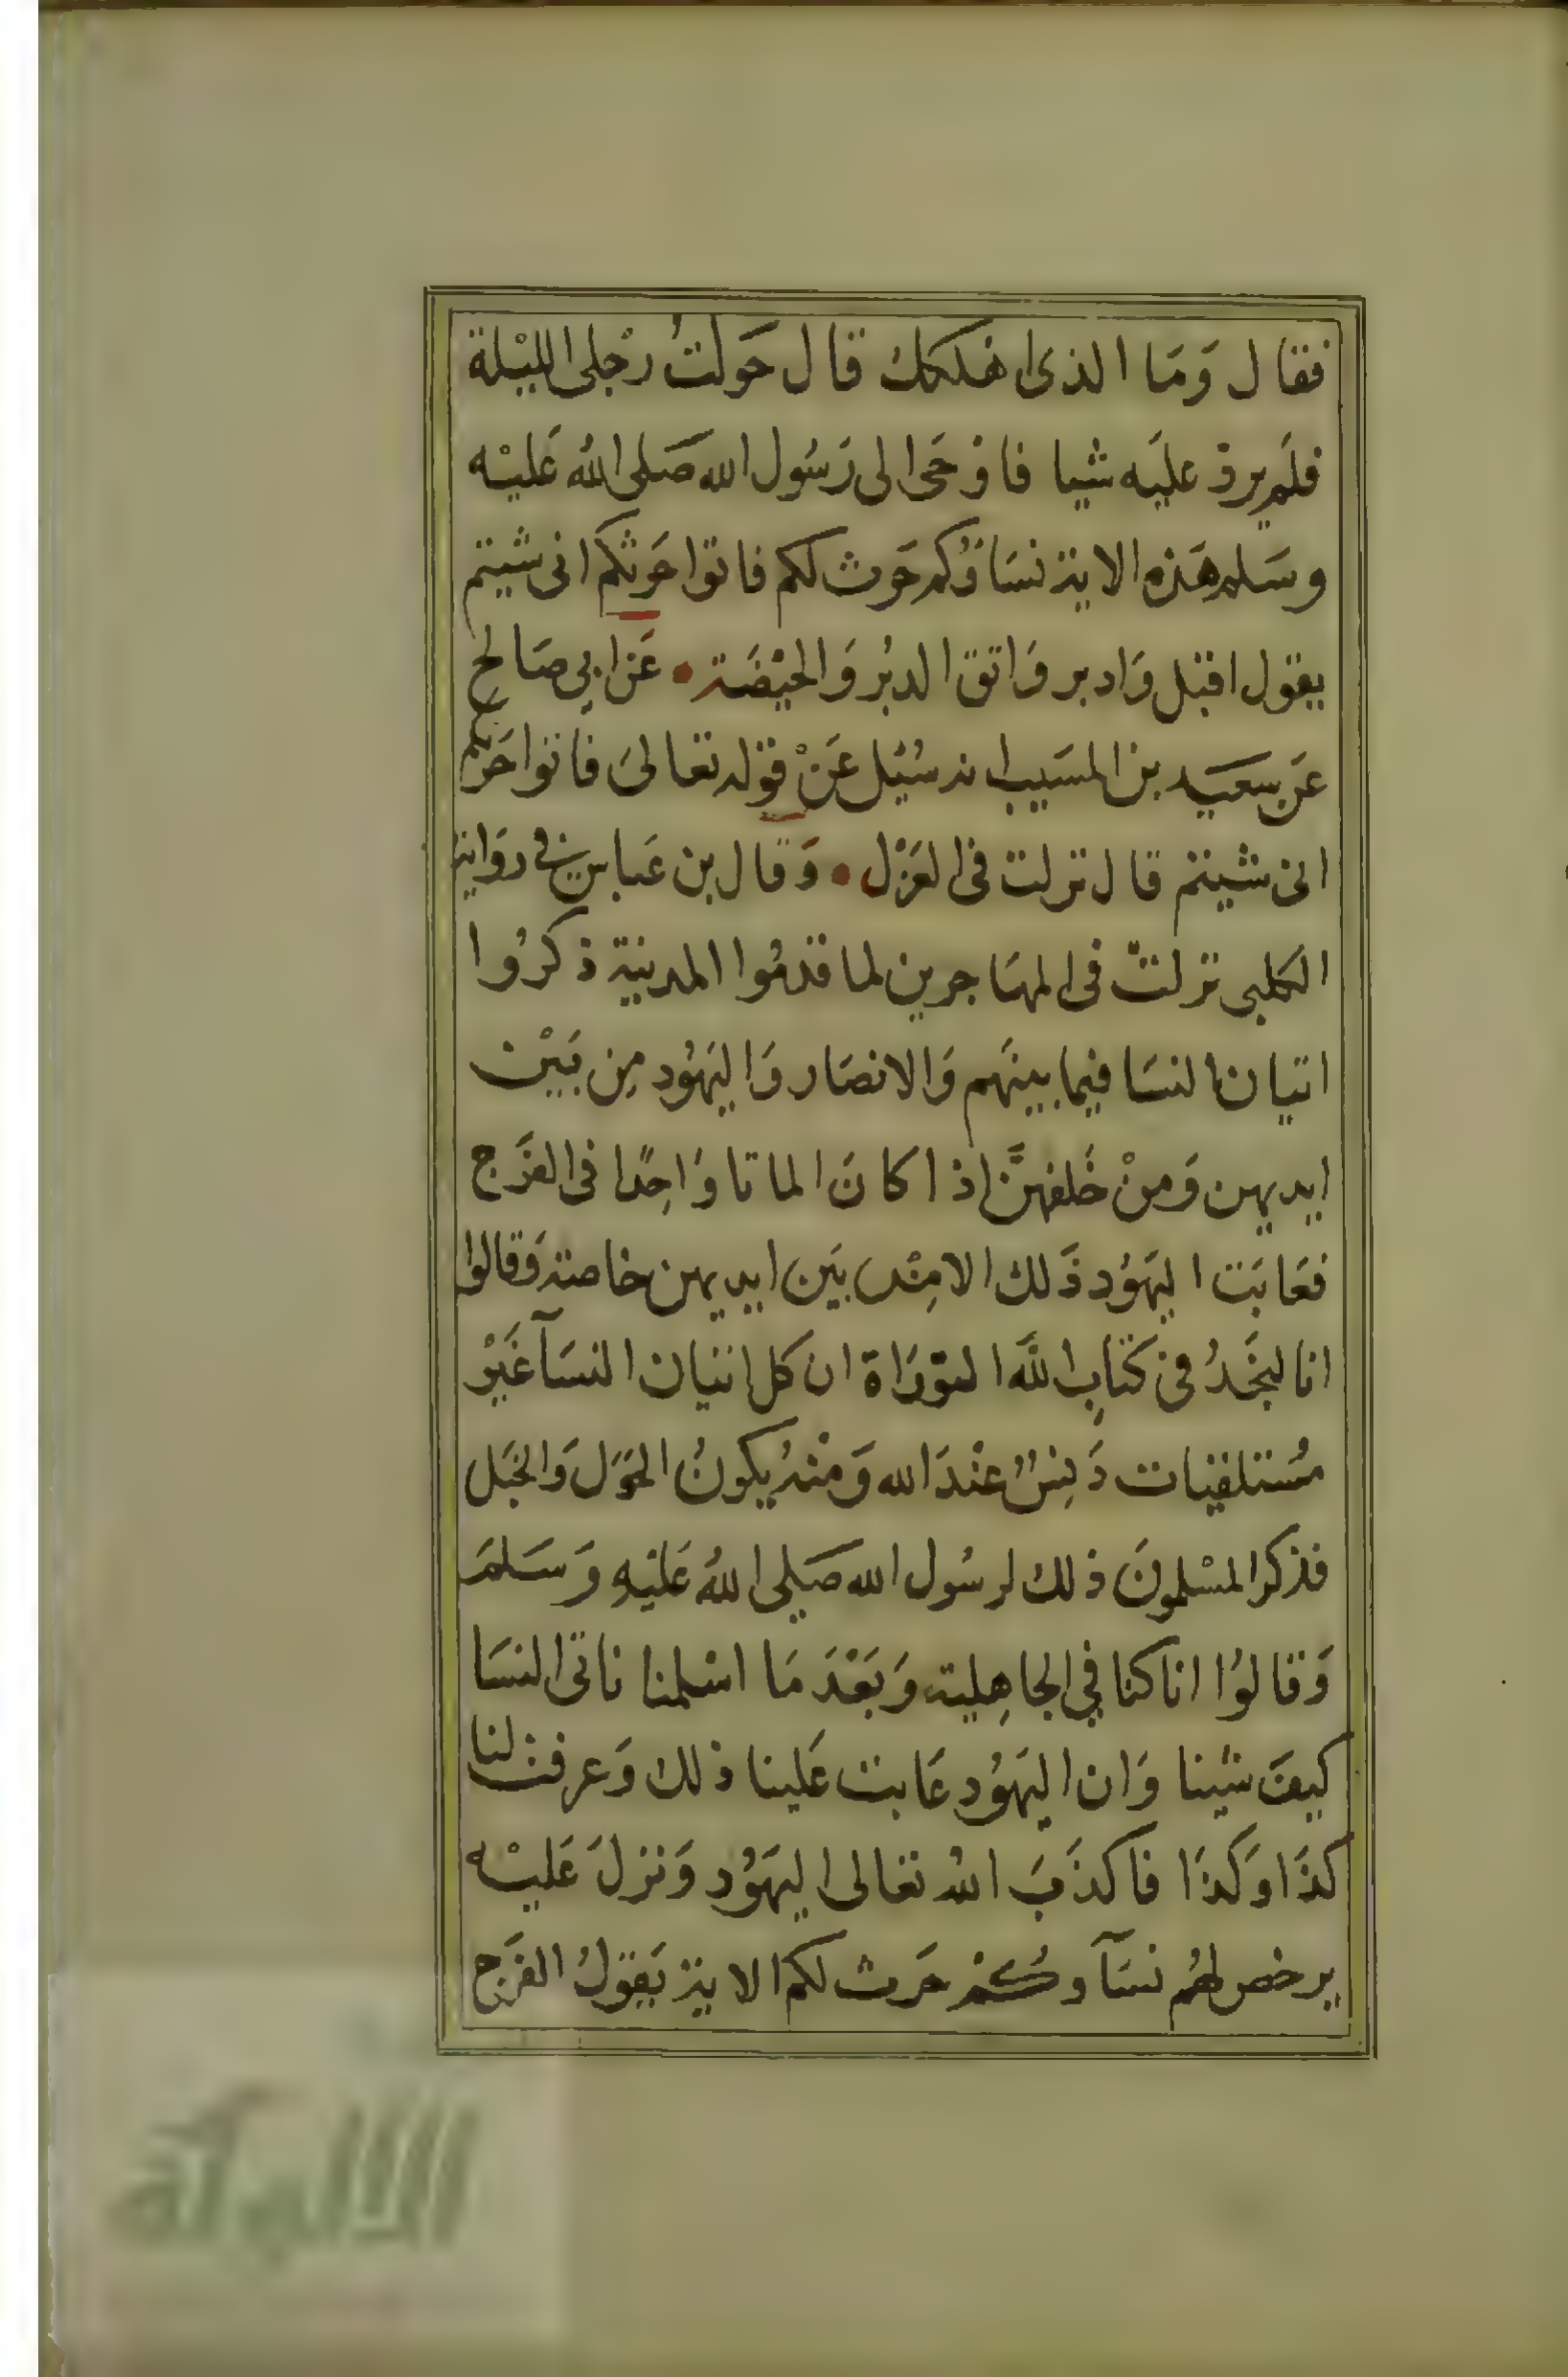 فقال وَمَا الذى اهلكك قال حَولتُ رَحْلى الليْلة
فلَم يرد عليَه شيا فاوْحَى الى رَسُول الله صَلى اللهُ عَليْه
وسَلم هَذه الاية نسَاؤكم حَرث لكم فاتوا حَرثكم انى شيتم
يقول اقبَل وَادبر وَاتق الدبُر وَالحيْضَة • عَن ابى صَالح
عَن سعَيد بن المسَيب انه سُئِل عَنْ قوْله تعَالىَ فاتوا حَرثكم
انى شيتم قال نزلت فى العَزْل • وَقال بن عَباس فى روَاية
الكلبى نزلتْ فى المهَاجرين لما قدمُوا المدينة ذكرُوا
اتيان النسَا فيما بينَهم وَالانصَار وَاليَهُود مِن بَيْن
ايديهن وَمِنْ خَلفهنَّ اذا كانَ الماتا وَاحِدًا فى الفَرج
فعَابَت اليَهُود ذَلك الا مِنْ بَين ايديهن خاصة وَقالوا
انا لنجَدُ فى كتَابِ اللَّه التوْرَاة ان كل اتيان النسَآ غَيْر
مُستلقيات دَنِسٌ عنْدَ الله وَمنْهُ يكونُ الحوَل وَالخبَل
فذكر المسْلمونَ ذلك لرسُول الله صَلى اللهُ عَليْهِ وَسَلمَ
وَقالوُا انا كنا في الجاهِلية وَبَعْدَ مَا اسْلمنا ناتى النسَا
كيفَ شينا وَان اليَهُود عَابت عَلينا ذلك وَعرفت لنا
كذَا وَكذَا فاكذَبَ اللهُ تعَالى اليَهُود وَنزلَ عَليْه
يرخص لهُم نسَآوكُمْ حَرث لكم الاية يَقولُ الفَرج
الألوكة